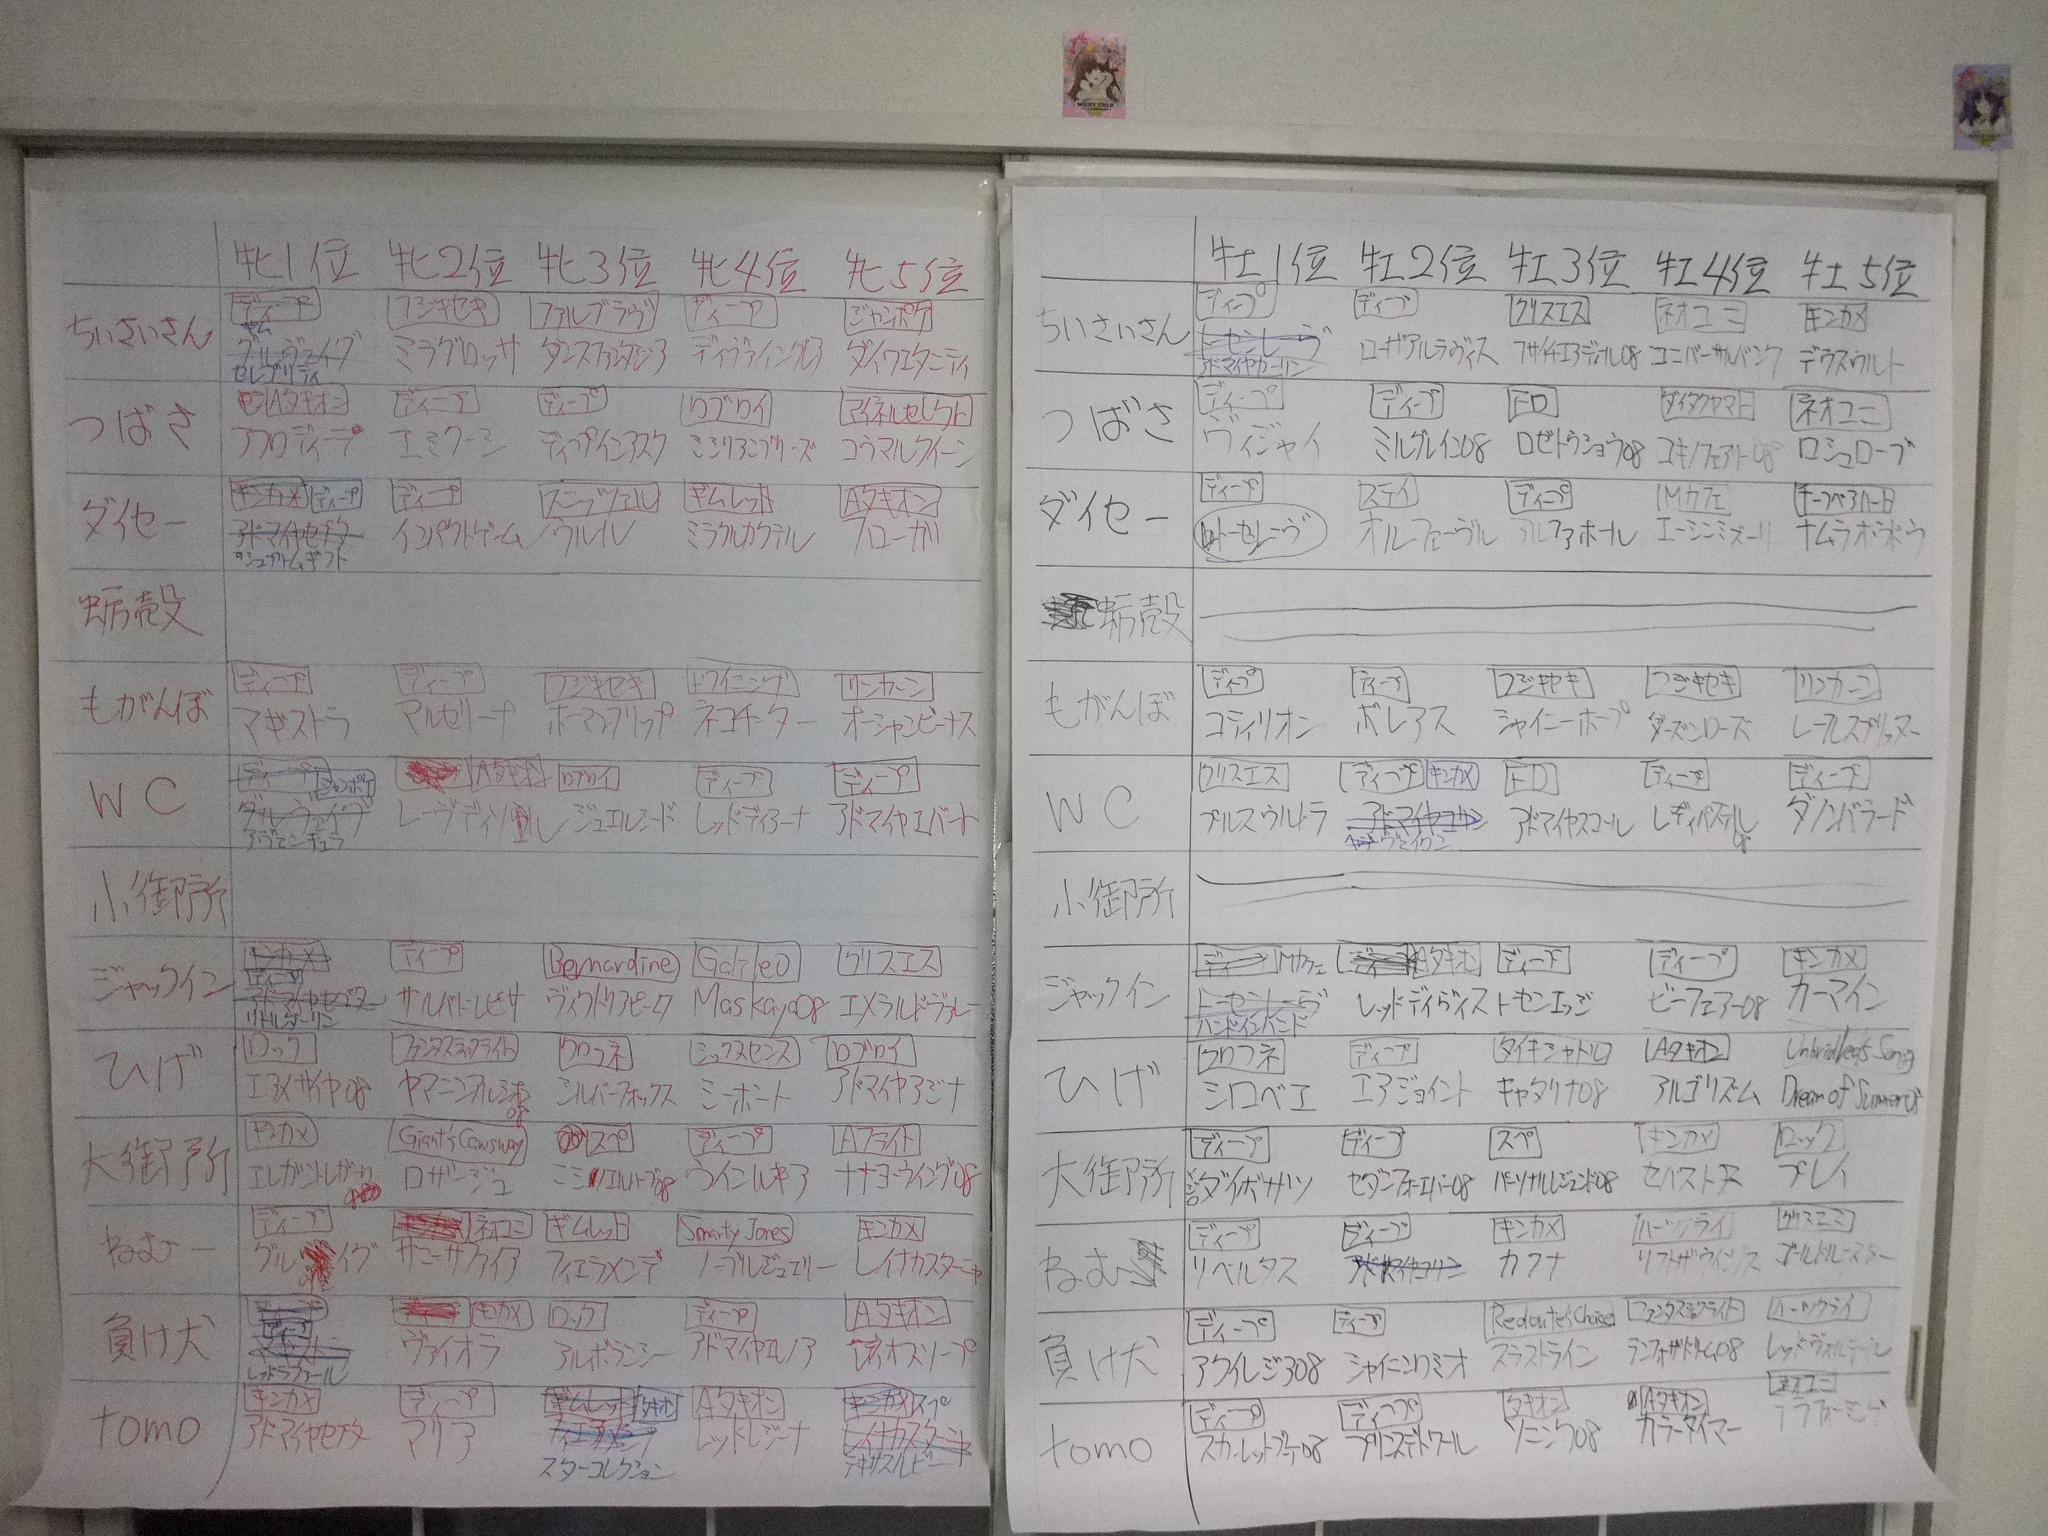 牝1位 牝2位 牝3位 牝4位 牝5位
ちいさいさん
ディープ フジキセキ ファルブラヴ ディープ ジャンポケ
ミラグロッサ ダンスファンタジア ディヴァインソングア ダイワエタニティ
セレブリティ
つばさ
Aタキオン ディープ ディープ ロブロイ マイネルセレクト
アフロディーテ エミターミ ディープインアスク コウマルクイーン
ダイセー
キンカメ ディープ ディープ スニッツェル ギムレット Aタキオン
アドマイヤセプター インパクトゲーム ウルイル ミラクルカクテル フローガ
蛎殻
もがんぼ
ディープ ディープ フジキセキ トワイニング リンカーン
マギストラ マルセリーナ ホーマンフリップ ネコチーター オーシャンビーナス
WC
ディープ ジャンポケ Aタキオン ロブロイ ディープ ディープ
グルヴェイグ レーヴディソール ジュエルシード レッドディアーナ アドマイヤエバート
アヴェンチュラ
小御所
ジャックイン
キンカメ ディープ Bernardine Galileo クリスエス
ディープ
アドマイヤセプター サルバトールピサ ヴィクトリアピース Maskaya08 エメラルドヴァレー
リトルダーリン
ひげ
ロック ファンタスティックライト クロフネ シックスセンス ロブロイ
エアメサイヤ08 シルバーフォックス ミーボート アドマイヤアミナ
大御所
キンカメ Giant's Causeway スペ ディープ Aフライト
ロザージュ ウインルキア ナナヨーウイング08
ねむー
ディープ ネオユニ ギムレット Smarty Jones キンカメ
サミーサファイア フィエラメンテ ノーブルジュエリー レイナカスターニャ
負け犬
ディープ キンカメ ロック ディープ Aタキオン
ヴァイオラ アルボランシー アドマイヤエレノア
レッドラファール
tomo
キンカメ ディープ ギムレット タキオン Aタキオン キンカメ スペ
アドマイヤセプター マリア フィエラメンテ レッドレジーナ レイナカスターニャ
スターコレクション テキサスルビー
牡1位 牡2位 牡3位 牡4位 牡5位
ちいさいさん
ディープ ディープ クリスエス ネオユニ キンカメ
トーセンレーヴ ローザアルラヴィス フサイチエアデール08 ユニバーサルバンク デウスウルト
アドマイヤカーリン
つばさ
ディープ ディープ FD ダイタクヤマト ネオユニ
ヴィジャイ ミルグレイン08 ロゼトウショウ08 ユキノフェアリー08 ロシュローブ
ダイセー
ディープ ステイ ディープ Mカフェ チーフベアハート
トーセンレーヴ オルフェーヴル アルファホール エーシンミズーリ ナムラオウドウ
蛎殻
もがんぼ
ディープ ディープ フジキセキ フジキセキ リンカーン
コティリオン ボレアス シャイニーホープ ダーズンローズ レーブルスプリッター
WC
クリスエス ディープ キンカメ FD ディープ ディープ
プルスウルトラ アドマイヤコリン アドマイヤスコール レディパステル08 ダノンバラード
ヴェイロン
小御所
ジャックイン
ディープ Mカフェ ディープ Aタキオン ディープ ディープ キンカメ
トーセンレーヴ レッドデイヴィス トーセンエッジ ビーフェアー08 カーマイン
ハンドインハンド
ひげ
クロフネ ディープ タイキシャトル Aタキオン Unbridled's Song
シロベエ エアジョイント キャタリナ08 アルゴリズム Dream of Summer08
大御所
ディープ ディープ スペ キンカメ ロック
ダイボサツ セダンフォーエバー08 パーソナルレジェンド08 セバストス プレイ
ねむ
ディープ ディープ キンカメ ハーツクライ クリスエス
リベルタス アドマイヤコリン カフナ リフトザウイングス ゴールドルースター
負け犬
ディープ ディープ Redoute's Choice ファンタスティックライト ハーツクライ
アクイレジア08 シャイニンロミオ スラストライン レッドヴォルテール
tomo
ディープ ディープ タキオン Aタキオン ネオユニ
スカーレットブーケ08 プリンスデトワール ソニンク08 カラータイマー テラフォーミング